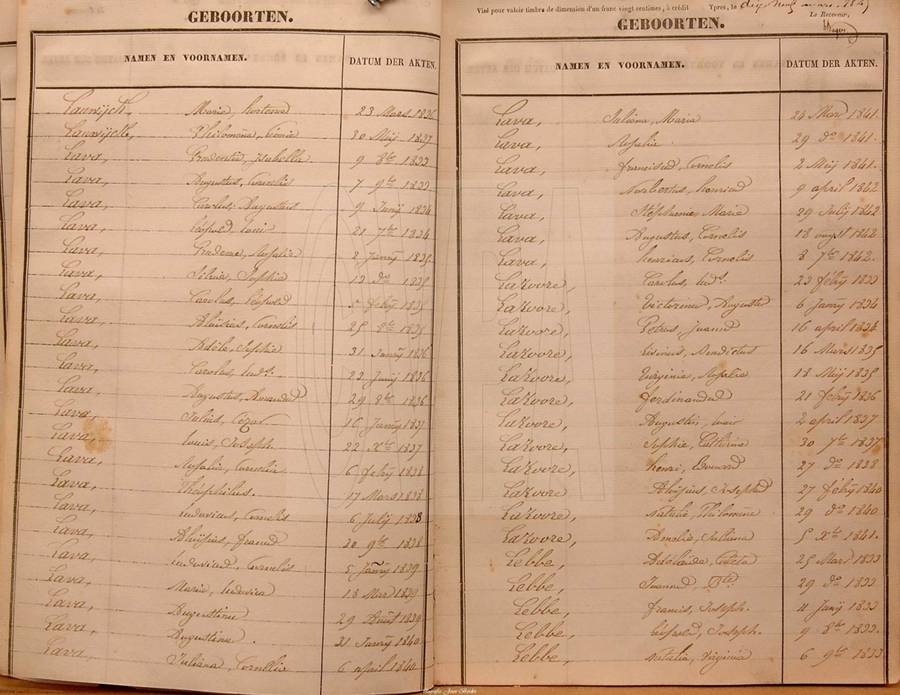 GEBOORTEN.
NAMEN EN VOORNAMEN. DATUM DER AKTEN.
Lauwijck, Maria, hortense 23 Mars 1836
Lauwijck, Philomena, 30 Meij 1837
Lava, Prudentia, Isabelle 9 8bre 1833
Lava, Augustus, Cornelis 7 9bre 1833
Lava, Carolus, Augustus 9 Junij 1834
Lava, Leopold, Louis 21 7bre 1834
Lava, Rosalie 2 1835
Lava, Sophie 13 do 1835
Lava, Carolus, Leopold 5 febrij 1835
Lava, Aloisius, Cornelis 25 8bre 1835
Lava, Adèle, Sophie 31 Janrij 1836
Lava, Carolus, Ludc. 23 Junij 1836
Lava, Augustus, 29 8bre 1836
Lava, Julius, Cézar 16 Janrij 1837
Lava, Louis, Joseph 22 Xbre 1837
Lava, Rosalie, Cornelia 6 febrij 1838
Lava, Théophilus. 17 Mars 1838
Lava, Ludovicus, Cornelis 6 Julij 1838
Lava, Aloijsius, Francis 20 9bre 1838
Lava, Ludovicus, Cornelis 5 Janrij 1839
Lava, Maria, Ludovica 18 Mar 1839
Lava, Augustine 29 1839
Lava, Augustine. 31 Janrij 1840
Lava, Juliana, Cornelia 6 april 1840
Visé pour valoir timbre de dimension d'un franc vingt centimes, à crédit Ypres, le
Le Receveur,
GEBOORTEN.
NAMEN EN VOORNAMEN. DATUM DER AKTEN.
Lava, Juliana, Maria 26 Mars 1841.
Lava, Rosalie. 29 do 1841.
Lava, franciscus, Cornelis 2 Meij 1841.
Lava, Norbertus, henricus 9 april 1842
Lava, Stéphanie, Marie 29 Julij 1842
Lava, Augustus, Cornelis 18 augst 1842
Lava, henricus, Cornelis 8 7bre 1842.
LaVoore, Carolus, Ludc. 23 febrij 1833
LaVoore, Victorine, Auguste 6 Janrij 1834
LaVoore, Petrus, Joannes 16 april 1834
LaVoore, Livinus, Benedictus 16 Mars 1835
LaVoore, Virginia, Rosalie 18 Meij 1835
LaVoore, ferdinandus 21 febrij 1836
LaVoore, Augustin, Louis 2 april 1837
LaVoore, Sophie, Catherine 30 7bre 1837
LaVoore, henri, Edouard 27 do 1838
LaVoore, Aloijsius, Joseph 27 febrij 1840
LaVoore, Natalie, Philomène 29 do 1840
LaVoore, Amelie, Juliana 5 Xbre 1841.
Lebbe, Adélaïde, 25 Mars 1833
Lebbe, Joannes, Bte. 29 do 1833
Lebbe, francis, Joseph. 11 Junij 1833
Lebbe, Léopold, Joseph. 9 8bre 1833.
Lebbe, Natalia, Virginia 6 9bre 1833